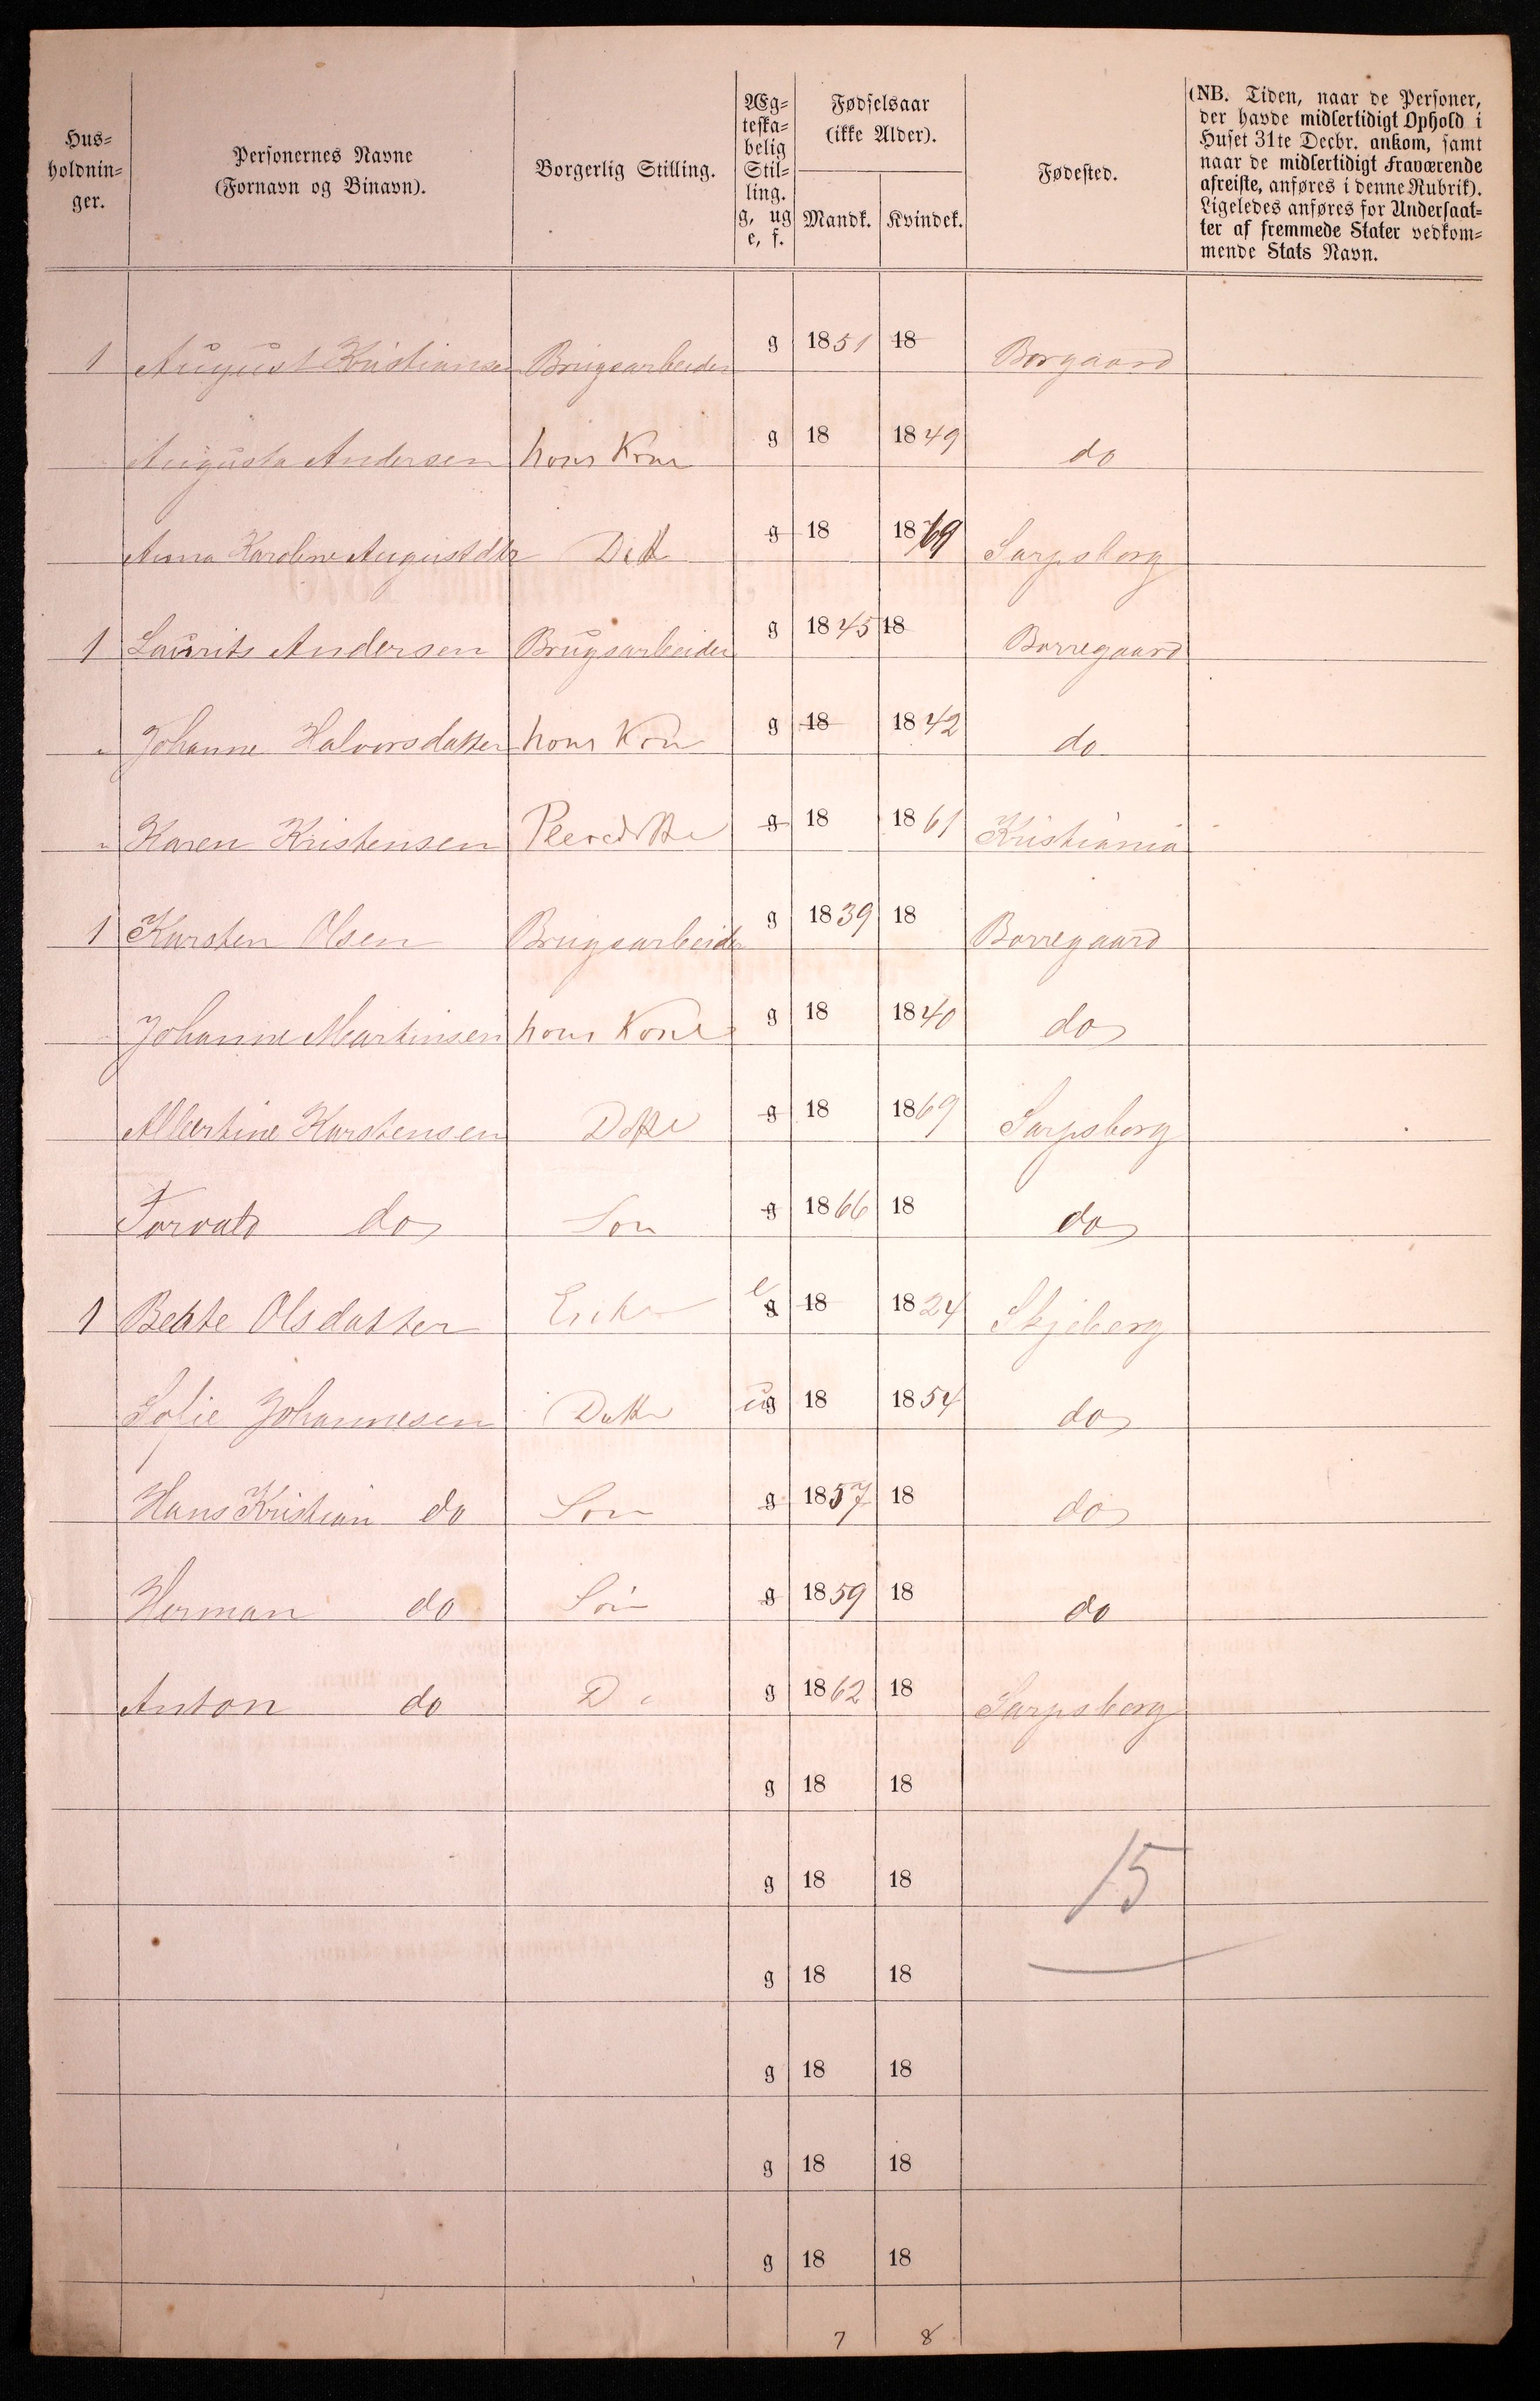 Hus=
holdnin=
ger.
Personernes Navne
(Fornavn og Binavn).
Borgerlig Stilling.
Æg=
teska=
belig
Stil=
ling.
g, ug
e, f.
Fødselsaar
(ikke Alder).
Mandk. Kvindek.
Fødested.
(NB. Tiden, naar de Personer,
der havde midlertidigt Ophold i
Huset 31te Decbr. ankom, samt
naar de midlertidigt fraværende
afreiste, anføres i denne Rubrik).
Ligeledes anføres for Undersaat=
ter af fremmede Stater vedkom=
mende Stats Navn.
1 August Kristiansen Brugsarbeider g 1851 18 Borgaard
Augusta Andersen hans Kone g 18 1849 do
Anna Karoline Augustdtr Datt g 18 1869 Sarpsborg
1 Laurits Andersen Brugsarbeider g 1845 18 Borregaard
" Johanne Halvorsdatter hans Kone g 18 1842 do
" Karen Kristensen g 18 1861 Kristiania
1 Karsten Olsen Brugsarbeider g 1839 18 Borregaard
Johanne Martinsen hans Kone g 18 1840 do
Albertine Karstensen Datte g 18 1869 Sarpsborg
Torvald do Søn g 1866 18 do
1 Beate Olsdatter Enke e g 18 1824 Skjeberg
Sofie Johannesen Datte ug 18 1854 do
Hans Kristian do Søn g 1857 18 do
Herman do Søn g 1859 18 do
Anton do Do g 1862 18 Sarpsborg
g 18 18
g 18 18 15
g 18 18
g 18 18
g 18 18
g 18 18
7 8